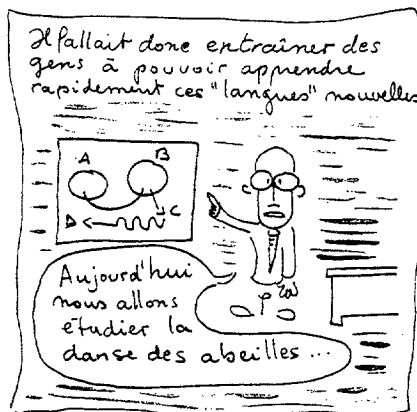 Il fallait donc entraîner des
gens à pouvoir apprendre
rapidement ces "langues" nouvelles
A
B
C
D
Aujourd'hui
nous allons
étudier la
danse des abeilles...